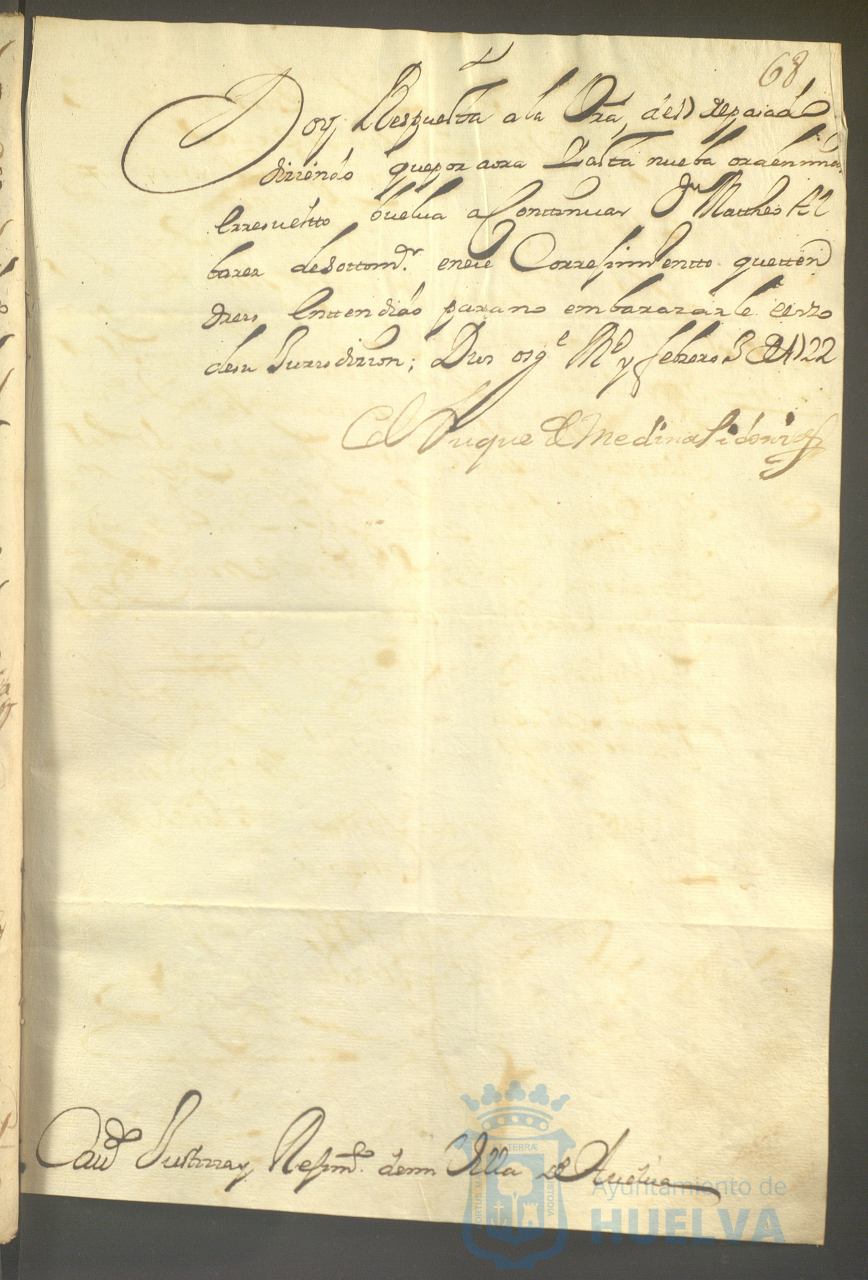 68
Doy Respuesta a la Vra, de 5 de pasado
diziendo que por aora Hasta nueba orden mia
he resuelto buelva a Continuar Dn Matheo Al
barez de Sottomr. en ese Correjimientto que tten
dreis Enttendido para no embarazarle el uso
de su Jurisdizion; Dios osge Md y febrero 3 de 1722
El Duque de Medina Sidonia
Cavdo Justizia y Rejimto. de mi Villa de Huelva
Ayuntamiento de
HUELVA